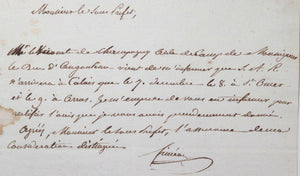 Monsieur le Sous Préfet,
Mr le Vicomte de Champagny Aide de Camp de Monseigneur
le Duc d'Angoulême vient de m'informer que S. A. R.
n'arrivera à Calais que le 7 decembre le 8 à St Omer
et le 9 à Arras. Je m'empresse de vous en informer pour
rectifier l'avis que je vous avais precedemment donné.
Agréez, Monsieur le Sous Préfet, l'assurance de ma
considération distinguée.